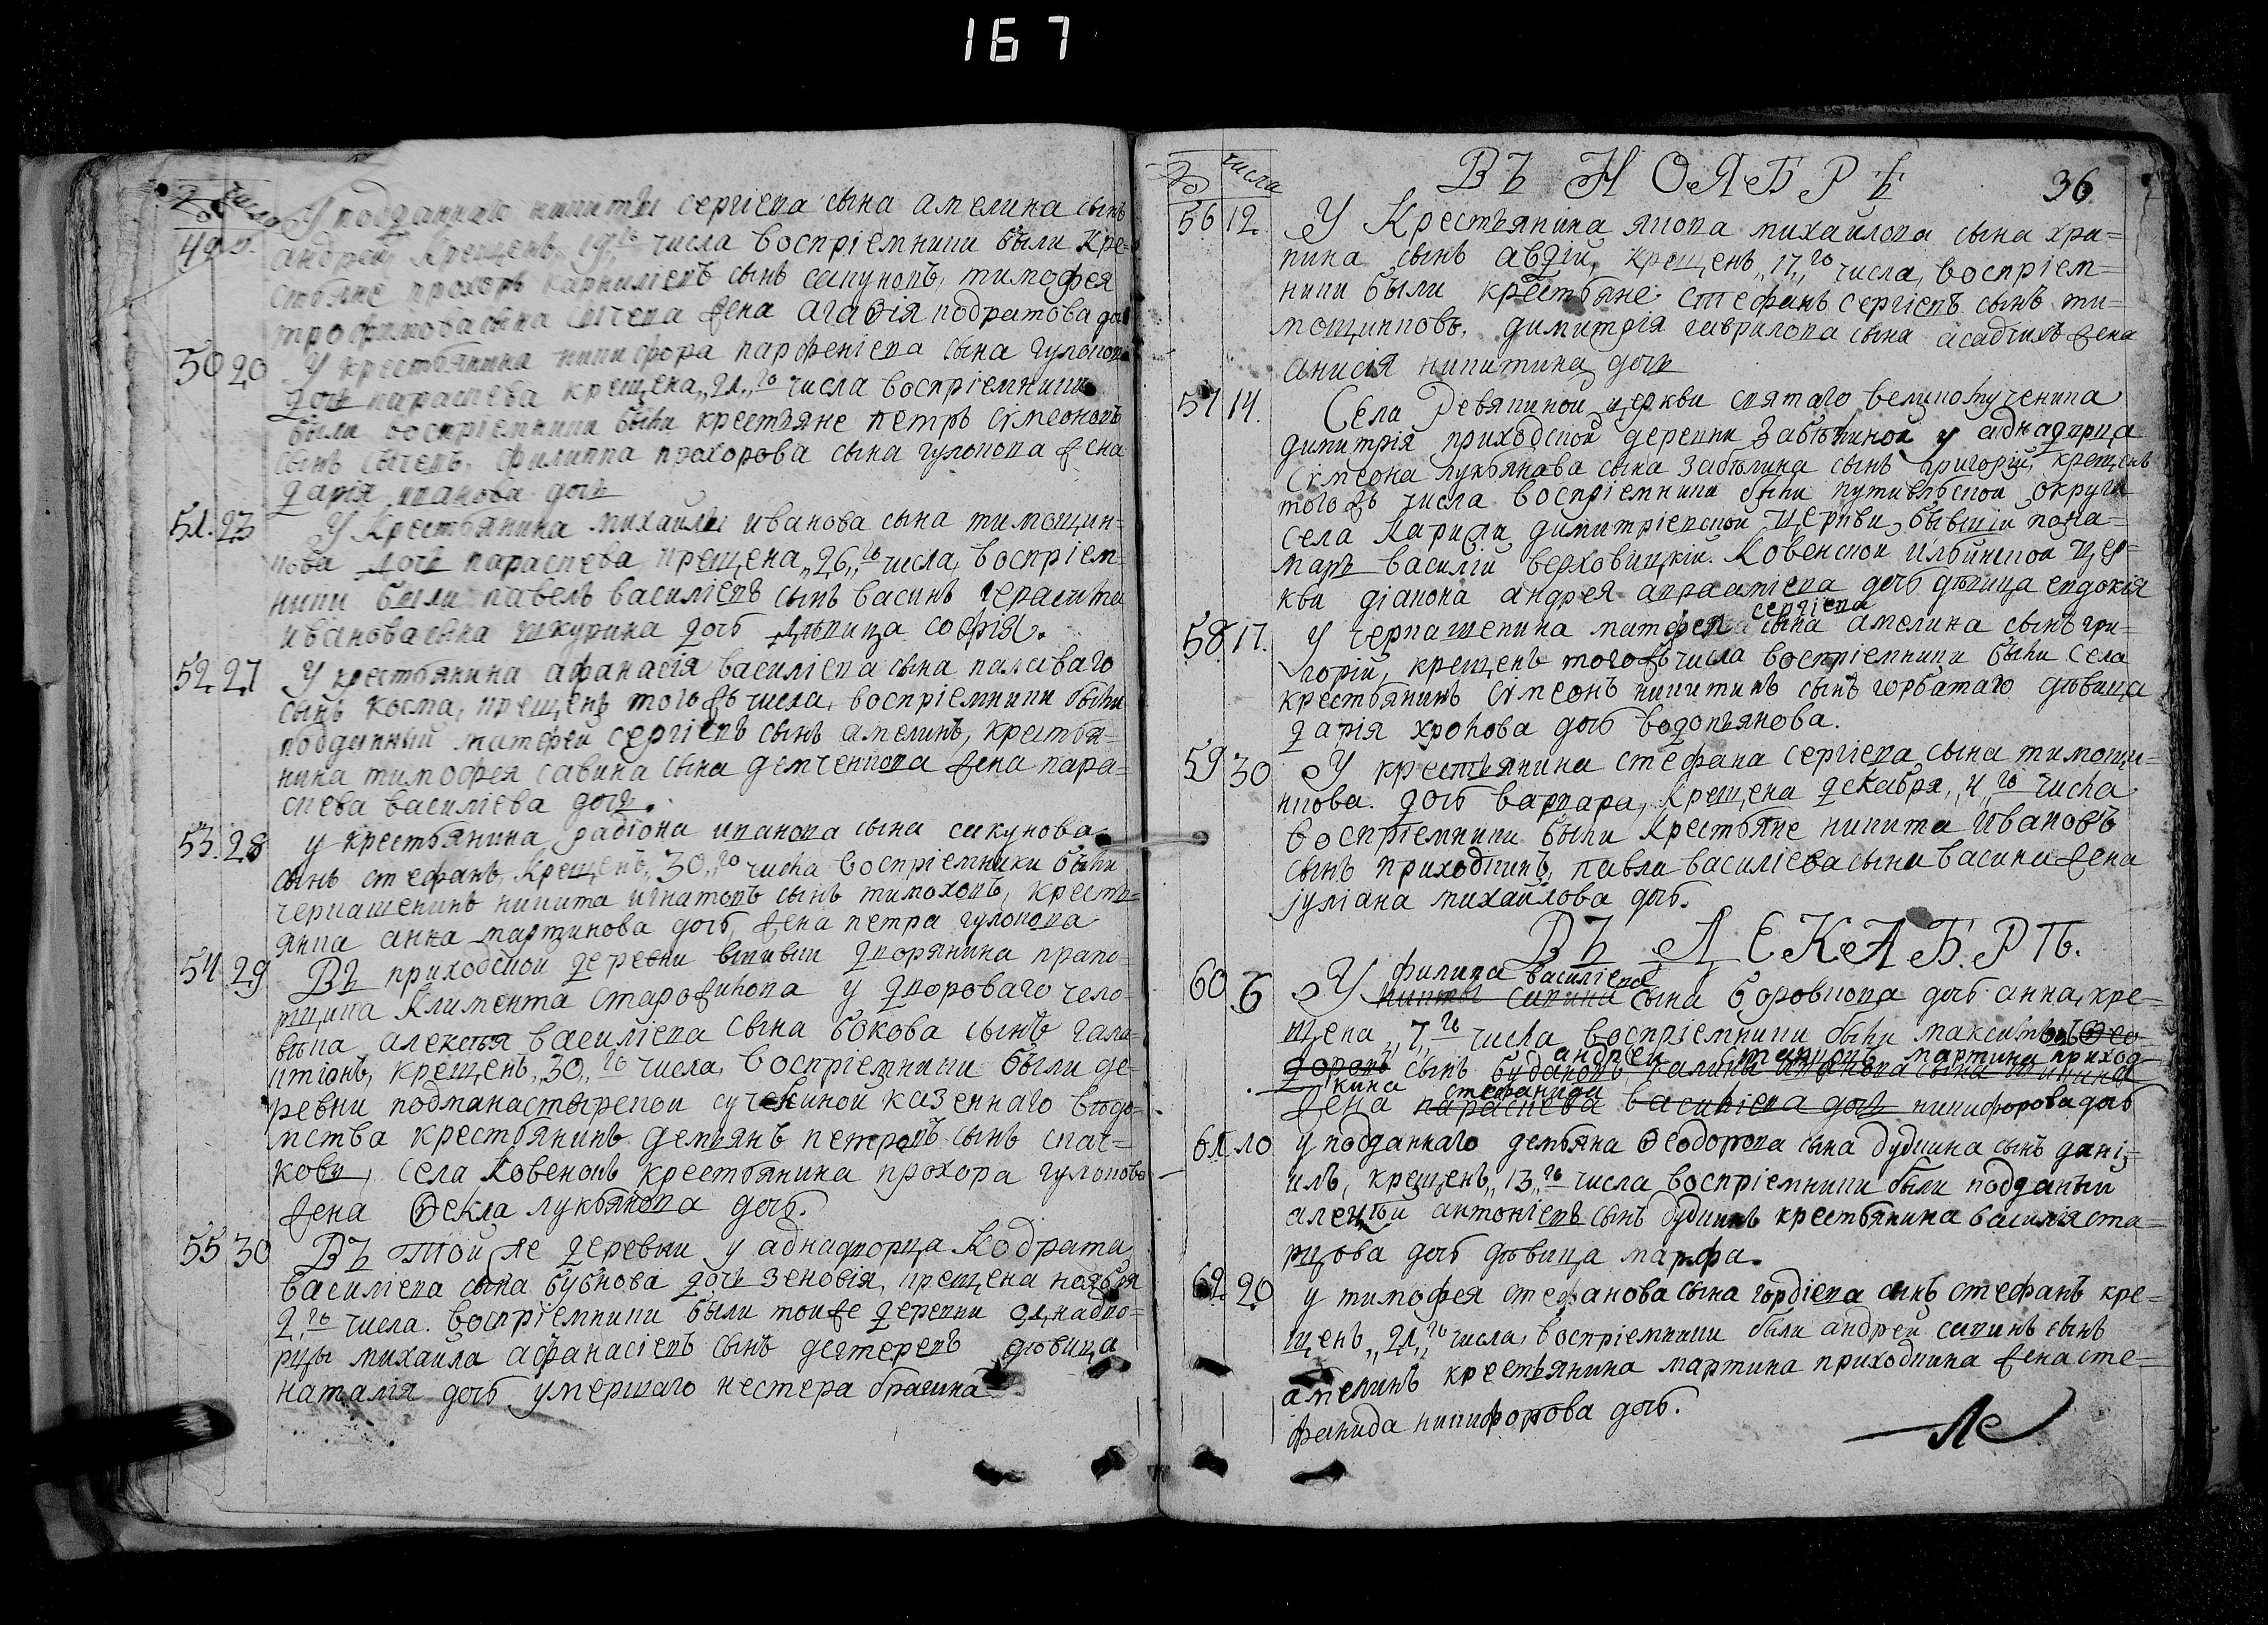 167
№ число
У подданнаго никиты сергіева сына амелина сынъ
49
андрей, Крещенъ, 19,го числа воспріемники были Кре=
стьяне прохоръ карниліевъ сынъ сапуновъ, тимофея
трофимова сына сычева жена агаѳія кодратова дочь
50 20 У крестьянина никифора парфеніева сына гулокова
дочь параскева крещена „21„го числа воспріемники
были воспріемники были крестьяне петръ сімеоновъ
сынъ сычевъ, филиппа прохорова сына гулокова жена
дарія иванова дочь
51. 23 У Крестьянина михайлы иванова сына тимощин=
кова дочь параскева крещена „26„го числа, воспріем
ники были павелъ василіевъ сынъ васинъ герасима
иванова сына шкурина дочь дѣвица софія.
52 27 У крестьянина афанасія василіева сына
сынъ косма, крещенъ того жъ числа, воспріемники были
подданный матфей сергіевъ сынъ амелинъ, крестья=
нина тимофея савина сына демченкова жена пара=
скева василіева дочь.
53. 28 у крестьянина радіона иванова сына сакунова
сынъ стефанъ, Крещенъ „30„го числа воспріемники были
черкашенинъ никита игнатовъ сынъ тимоховъ, кресть=
янка анна мартинова дочь, жена петра гулокова
54 29 Въ приходской деревни дворянина прапо
рщика Климента Старожилова у двороваго чело
вѣка алексѣя василіева сына бокова сынъ гала
ктіонъ, крещенъ „30„го числа, воспріемники были де=
ревни подманастырской сучкиной казеннаго вѣдо
мства крестьянинъ демьянъ петровъ сынъ спач=
ковъ, села Ковенокъ крестьянина прохора гулокова
жена Ѳекла лукьянова дочь.
55 30 Въ той же деревни у аднадворца Кодрата
василіева сына бубнова дочь зеновія, крещена наября
2го числа. воспріемники были той же деревни аднадво=
рцы михаила афанасіевъ сынъ дегтеревъ дѣвица
наталія дочь умершаго нестера брагина
36
№ числа ВЪ НОЯБРѢ
56 12. У Крестьянина якова михайлова сына хри=
кина сынъ авдій, крещенъ „17„го числа, воспріем=
ники были крестьяне стефанъ сергіевъ сынъ ти=
мощинковъ, димитрія гаврилова сына асадчихъ жена
анисія никитина дочь
57 14. Села Ревякиной церкви святаго великомученика
димитрія приходской деревни Забѣлиной у аднадворца
Сімеона лукьянава сына забѣлина сынъ григорій, крещенъ
того жъ числа воспріемники были путивльской округи
села Карижи димитріевской церкви, бывшій пона=
марь василій верховицкій. Ковенской ильинской цер=
кви діакона андрея аврааміева дочь дѣвица евдокія
сергіева
58 17. У черкашенина матфея сына амелина сынъ гри=
горій, крещенъ того жъ числа воспріемники были села
крестьянинъ Сімеонъ никитинъ сынъ горбатаго дѣвица
дарія хролова дочь водопьянова.
59 30 У крестьянина стефана сергіева сына тимощи=
нкова. дочь варвара, Крещена декабря, „4„го числа
воспріемники были крестьяне никита Ивановъ
сынъ приходкинъ, павла василіева сына васина жена
іуліана михайлова дочь.
ВЪ ДЕКАБРѢ.
филипа василіева
60 6 У никиты савина сына боровкова дочь анна, кре=
щена „7„го числа воспріемники были максимъ Ѳео
андрей мартина приход
доровъ сынъ будановъ, иванова сына
кина стефанида
жена параскева василіева дочь никифорова дочь
61 10 у подданнаго демьяна Ѳеодорова сына дудкина сынъ дані=
илъ, крещенъ „13„го числа воспріемники были подданый
алексѣй антоніевъ сынъ дудкинъ крестьянина василія ста=
рцова дочь дѣвица марфа.
62 20 у тимофея стефанова сына гордіева сынъ стефанъ кре=
щенъ „21„го числа, воспріемники были андрей савинъ сынъ
амелинъ крестьянина мартина приходкина жена сте=
фанида никифорова дочь.